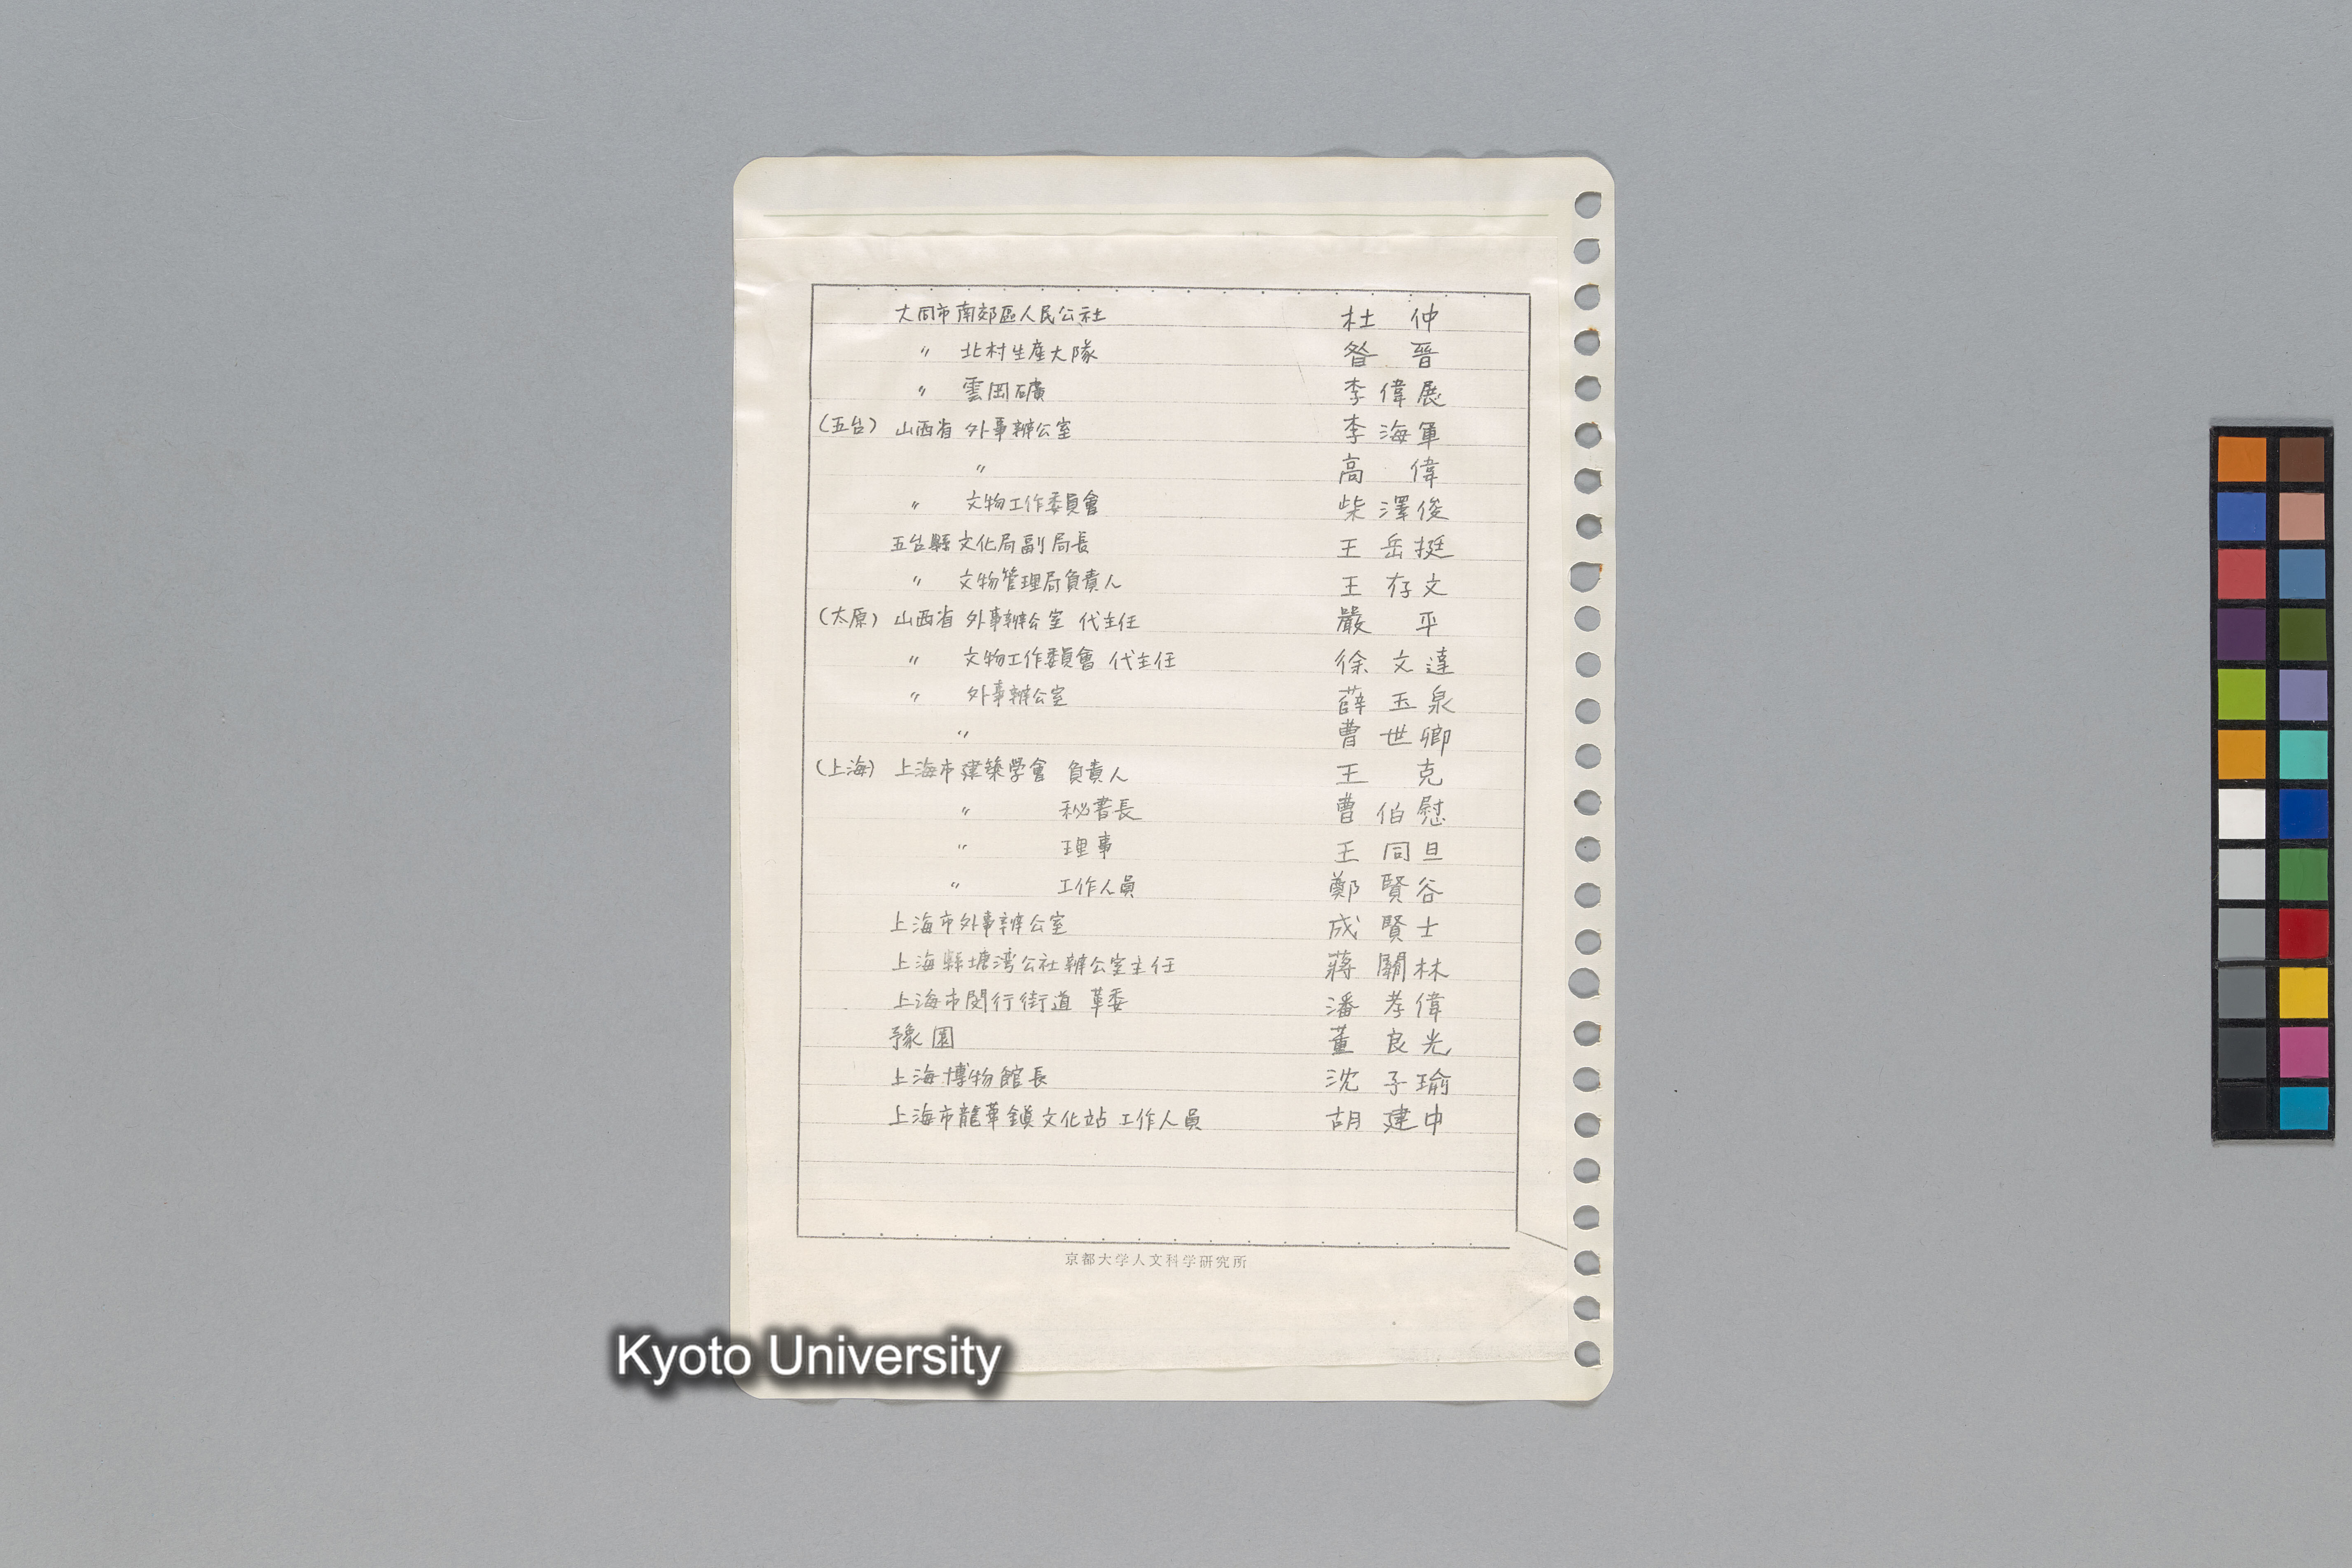 大同市南郊區人民公社 杜 仲
〃 北村生産大隊 昝 晋
〃 雲岡礦 李偉展
(五台) 山西省 外事辦公室 李海軍
〃 高 偉
〃 文物工作委員會 柴澤俊
五台縣文化局副局長 王岳挺
〃 文物管理局負責人 王存文
(太原) 山西省 外事辦公室 代主任 嚴 平
〃 文物工作委員會 代主任 徐文達
〃 外事辦公室 薛玉泉
〃 曹世卿
(上海) 上海市建築學會 負責人 王 克
〃 秘書長 曹伯慰
〃 理事 王同旦
〃 工作人員 鄭賢谷
上海市外事辦公室 成賢士
上海縣塘湾公社辦公室主任 蔣關林
上海市閔行街道 革委 潘孝偉
豫園 董良光
上海博物館長 沈子瑜
上海市龍華鎭文化站 工作人員 胡建中
京都大学人文科学研究所
Kyoto University